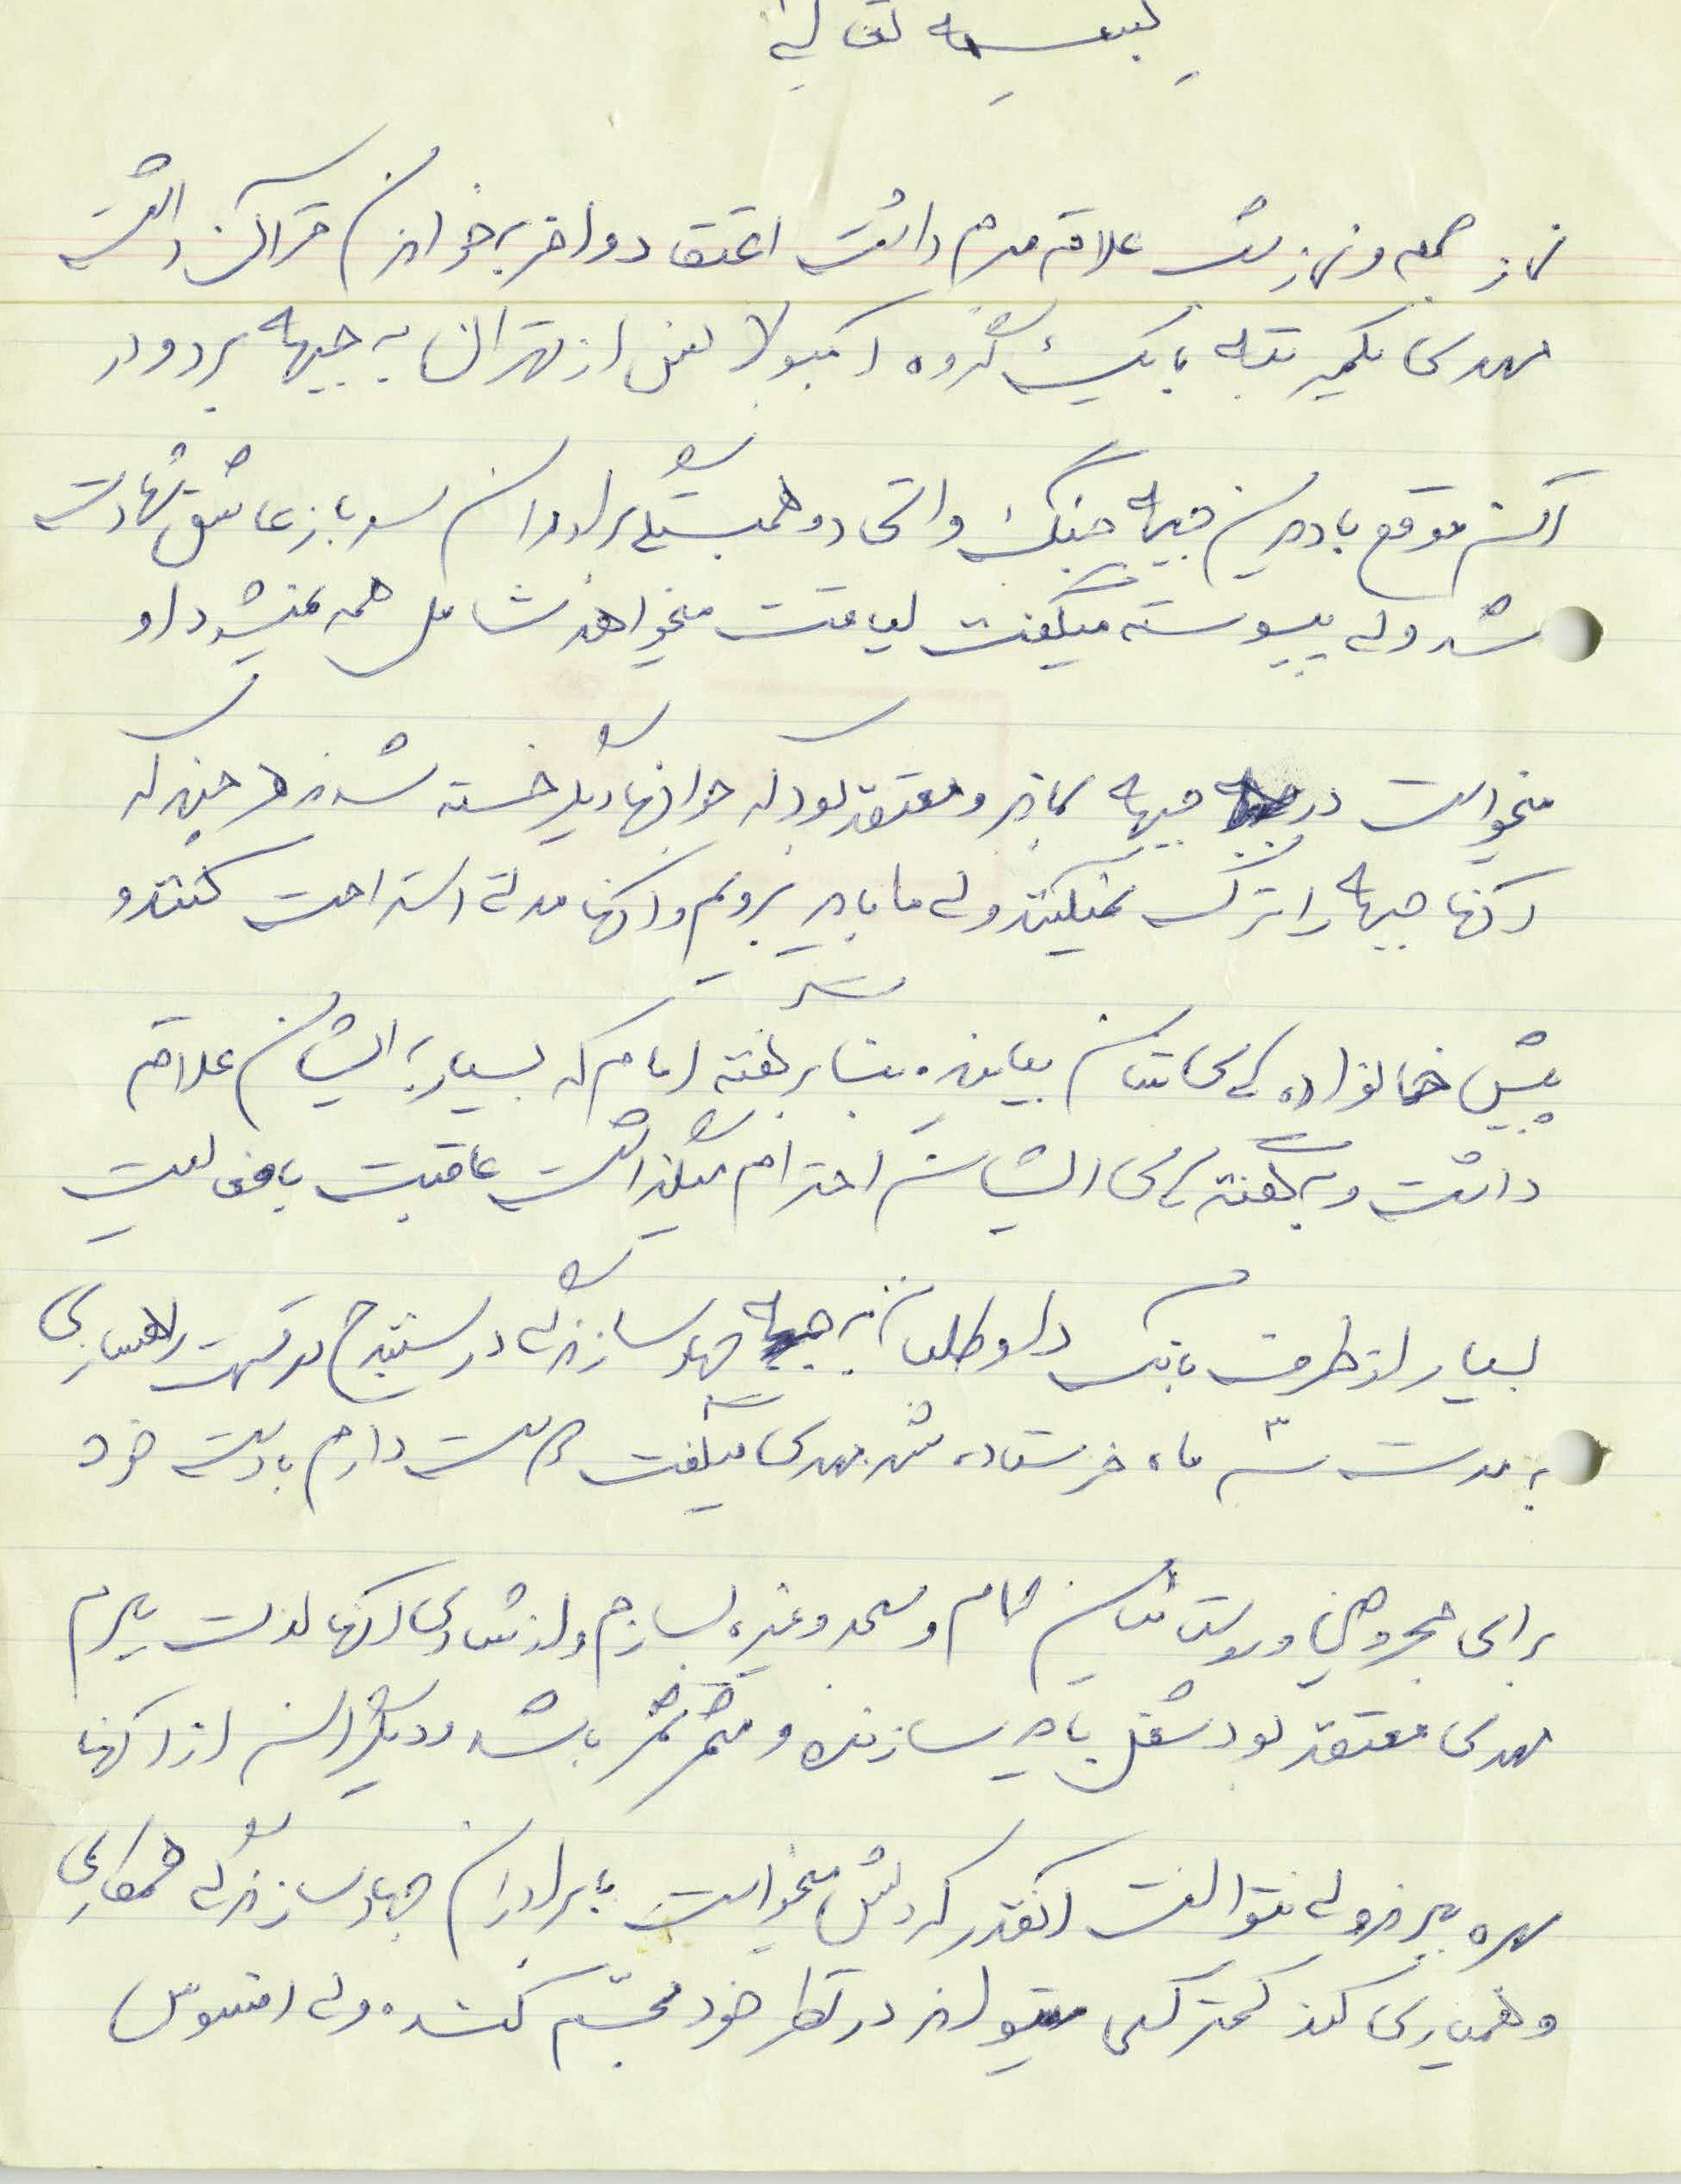 بسمه تعالی
نماز جمعه و نماز شب علاقه مبرم داشت اعتقاد وافر به خواندن قرآن داشت
مهدی یکمرتبه با یک گروه آمبولانس از تهران به جبهه برد و در
آن موقع با دیدن جبهه جنگ واقعی و همبستگی برادران سرباز عاشق شهادت
شد ولی پیوسته میگفت لیاقت میخواهد شامل همه نمیشود او
میخواست در جبهه بماند و معتقد بود که جوانها دیگر خسته شدند هر چند که
آنها جبهه را ترک نمیکنند ولی ما باید برویم و آنها مدتی استراحت کنند و
پیش خانواده هایشان بیایند. بنا بر گفته امام که بسیار به ایشان علاقه
داشت و به گفته های ایشان احترام میگذاشت عاقبت با فعالیت
بسیار از طرف بانک داوطلبانه به جهاد سازندگی در سنندج در قسمت راهسازی
به مدت سه ماه فرستاده شد مهدی میگفت دوست دارم با دست خود
برای مجروحین و روستائیان حمام و مسجد و غیره بسازم و از شادی آنها لذت ببرم
مهدی معتقد بود شغل باید سازنده و مثمر ثمر باشد و دیگران از آنها
بهره ببرند ولی نتوانست آنقدر که دلش میخواست با برادران جهاد سازندگی همکاری
و همیاری کند کمتر کسی میتواند در نظر خود مجسم کند. ولی افسوس